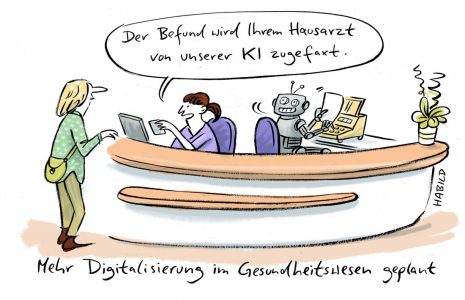 Der Befund wird Ihrem Hausarzt
von unserer KI zugefaxt.
HABILD
Mehr Digitalisierung im Gesundheitswesen geplant